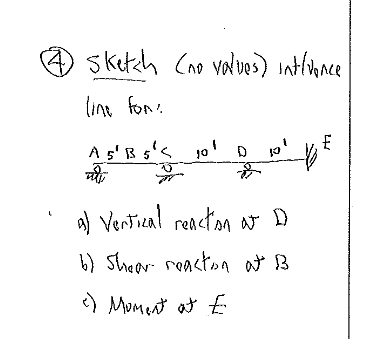 ④ Sketch (no values) influence
line for:
A 5' B 5' C 10' D 10' E
a) Vertical reaction at D
b) Shear reaction at B
c) Moment at E